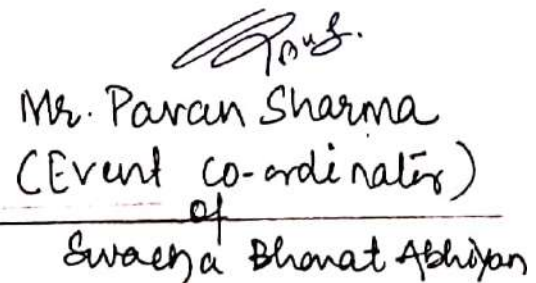 Mr. Pavan Sharma
(Event co-ordinator)
of
Swacha Bharat Abhiyan